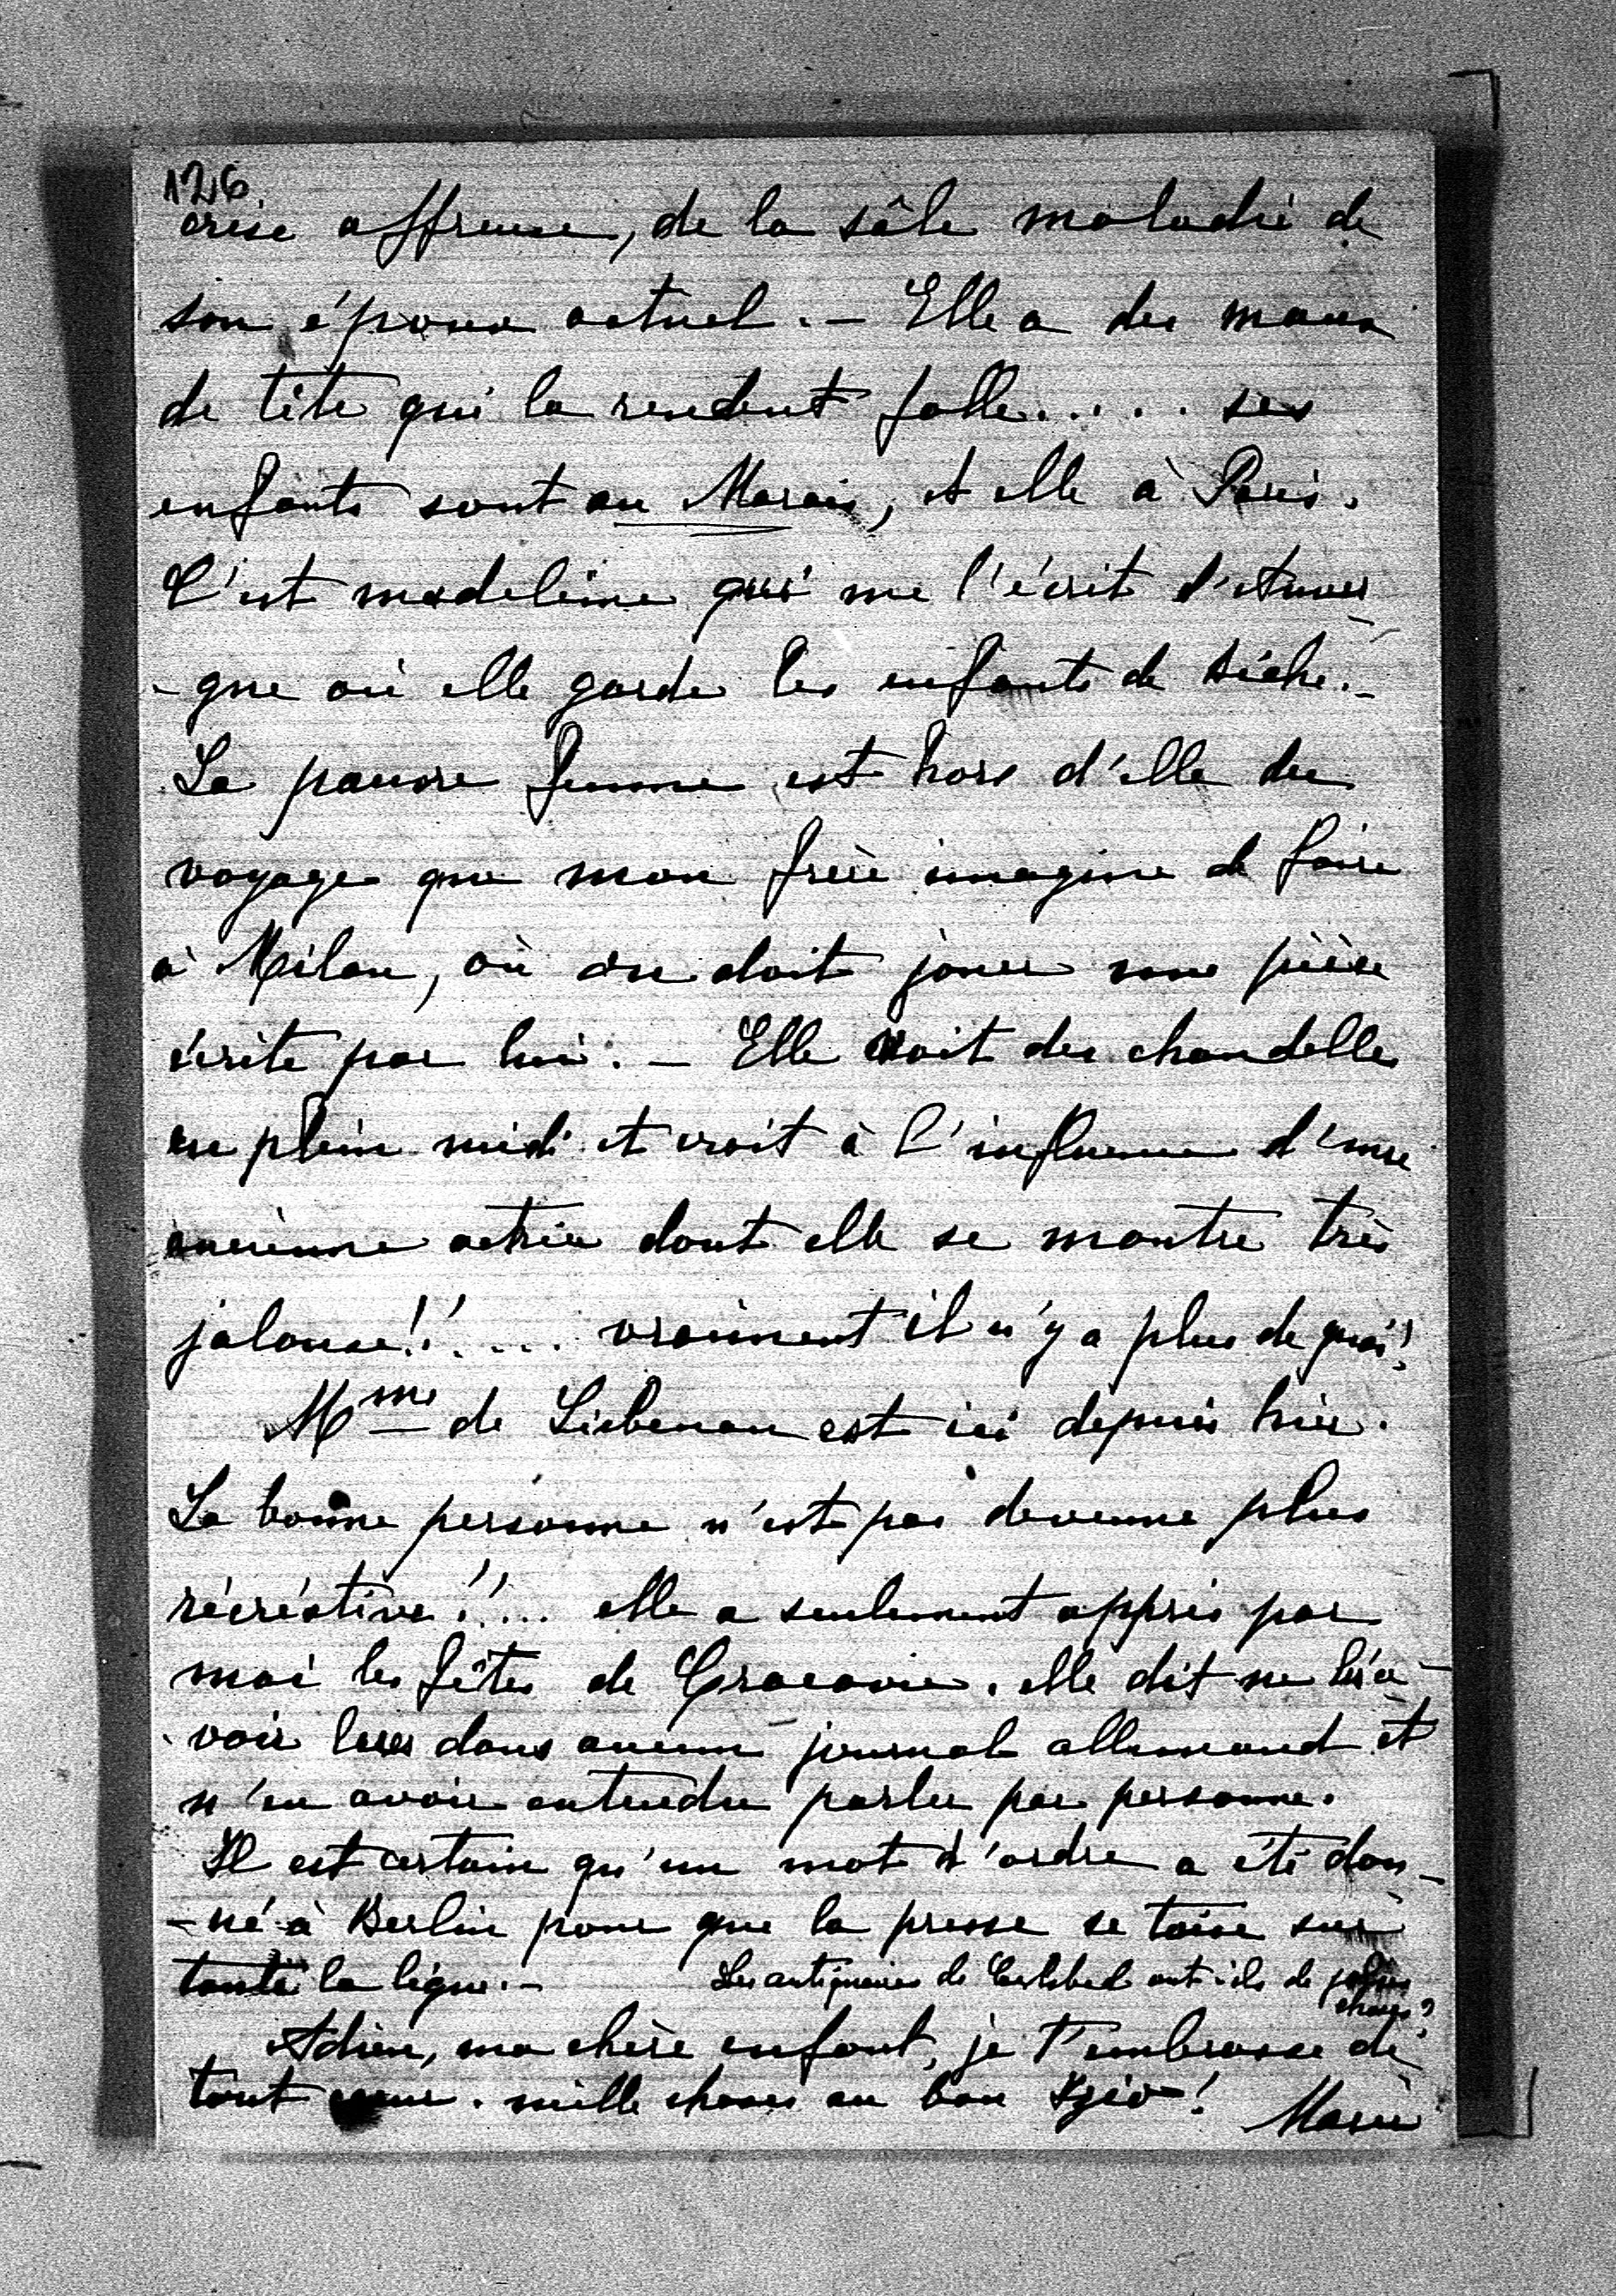 126
crise affreuse, de la sâle maladie de
son époux actuel. — Elle a des maux
de tête qui la rendent folle..... ses
enfants sont au Marais, et elle à Paris.
C'est madeleine qui me l'écrit d'Auver
-gne où elle garde les enfants de
La pauvre femme est hors d'elle du
voyage que mon frère imagine de faire
à Milan, où on doit jouer une pièce
écrite par lui. — Elle voit des chandelles
en plein midi et croit à l'influence d'une
ancienne actrice dont elle se montre très
jalouse!!.... vraiment il n'y a plus de quoi!
Mme de Liebenau est ici depuis hier.
La bonne personne n'est pas devenue plus
récréative!!... elle a seulement appris par
moi les fêtes de Cracovie. elle dit ne les a-
voir lues dans aucun journal allemand et
n'en avoir entendu parler par personne.
Il est certain qu'un mot d'ordre a été don-
-né à Berlin pour que la presse se taise sur
toute la ligne. — Les antiquaires de Carlsbad ont-ils de jolies
choses?
Adieu, ma chère enfant, je t'embrasse de
tout cœur. mille choses au bon Sgio! Marie